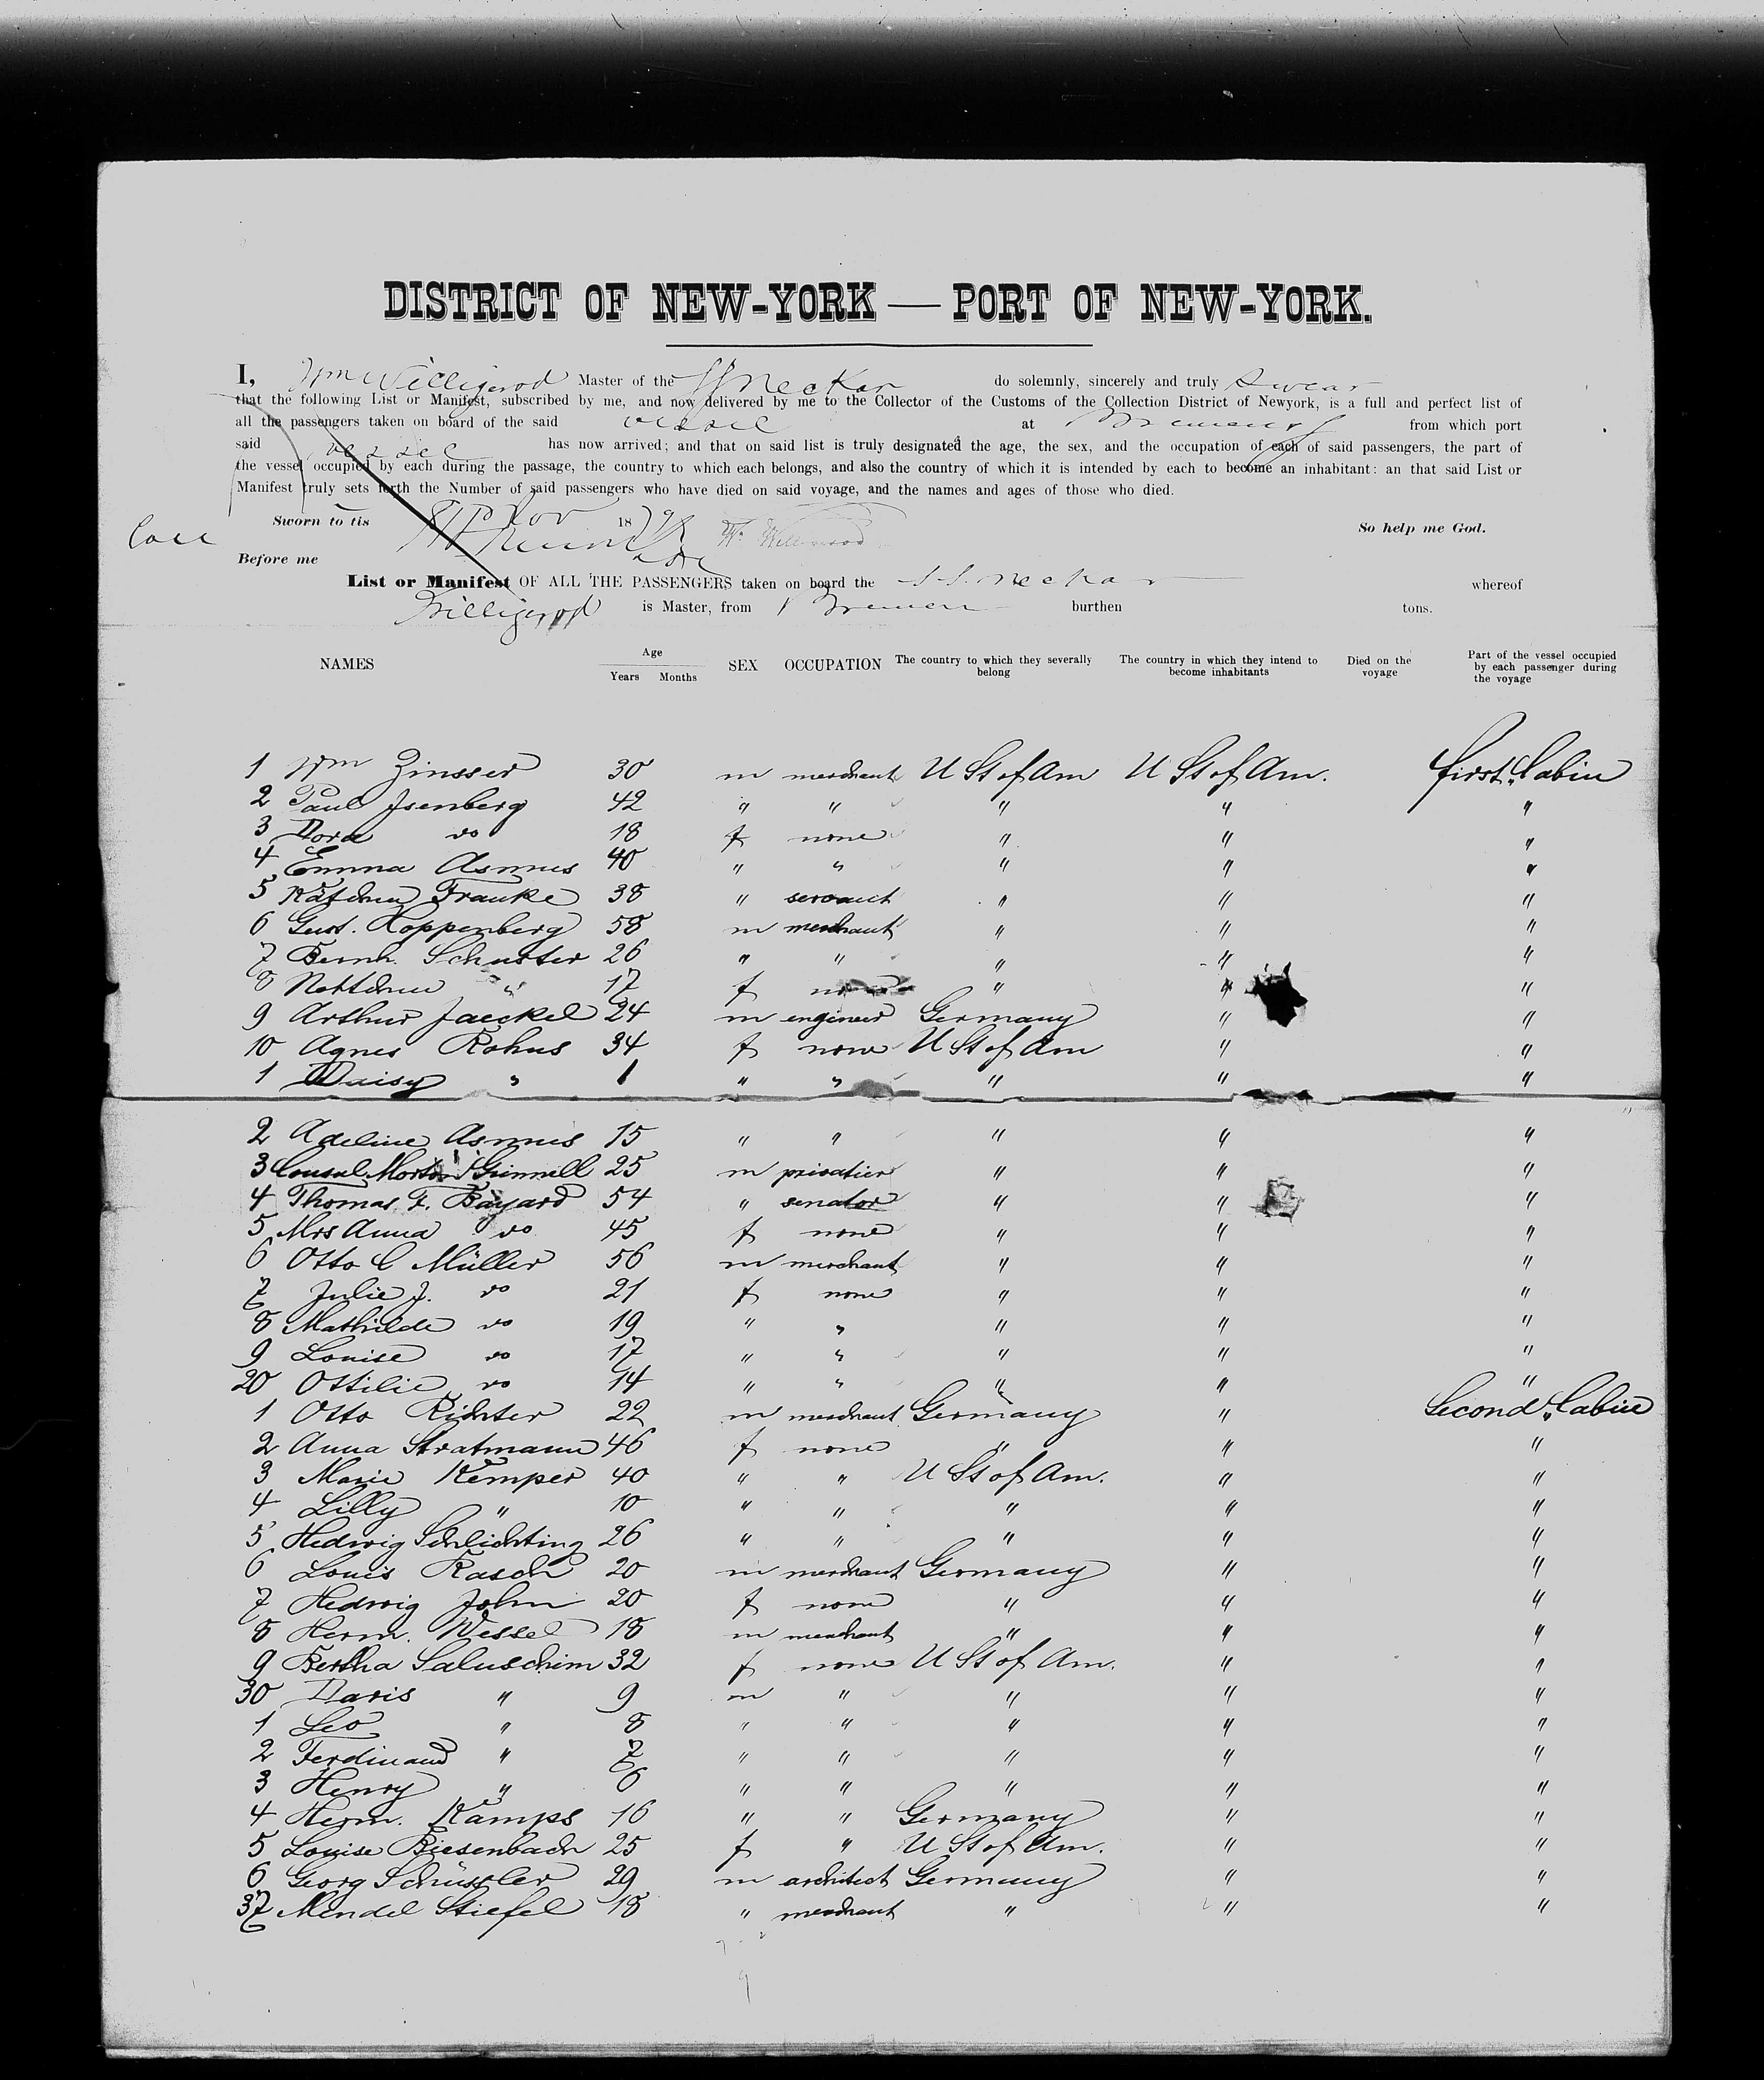 DISTRICT OF NEW-YORK — PORT OF NEW-YORK.
I, Wm Willigerod Master of the SS Neckar do solemnly, sincerely and truly swear
that the following List or Manifest, subscribed by me, and now delivered by me to the Collector of the Customs of the Collection District of Newyork, is a full and perfect list of
all the passengers taken on board of the said vessel at Bremen from which port
said vessel has now arrived; and that on said list is truly designated the age, the sex, and the occupation of each of said passengers, the part of
the vessel occupied by each during the passage, the country to which each belongs, and also the country of which it is intended by each to become an inhabitant: an that said List or
Manifest truly sets forth the Number of said passengers who have died on said voyage, and the names and ages of those who died.
Sworn to tis Nov 18 79 W. Willigerod So help me God.
Before me
List or Manifest OF ALL THE PASSENGERS taken on board the S.S. Neckar whereof
Willigerod is Master, from Bremen burthen tons.
NAMES Age Years Months SEX OCCUPATION The country to which they severally belong The country in which they intend to become inhabitants Died on the voyage Part of the vessel occupied by each passenger during the voyage
1 Wm Zinsser 30 m merchant U St of Am U St of Am. first Cabin
2 Paul Isenberg 42 " " " " "
3 Dora do 18 f none " " "
4 Emma Asmus 40 " " " " "
5 Käthchen Franke 38 " servant " " "
6 Gust. Koppenberg 58 m merchant " " "
7 Bernh. Schuster 26 " " " " "
8 Nettchen " 17 f none " " "
9 Arthur Jaeckel 24 m engineer Germany " "
10 Agnes Rohns 34 f none U St of Am " "
1 Daisy " 1 " " " " "
2 Adeline Asmus 15 " " " " "
3 Consul Morton Grinnell 25 m privatier " " "
4 Thomas F. Bayard 54 " senator " " "
5 Mrs Anna do 45 f none " " "
6 Otto C Müller 56 m merchant " " "
7 Julie J. do 21 f none " " "
8 Mathilde do 19 " " " " "
9 Louise do 17 " " " " "
20 Ottilie do 14 " " " " "
1 Otto Richter 22 m merchant Germany " Second Cabin
2 Anna Stratmann 46 f none " " "
3 Marie Kemper 40 " " U St of Am. " "
4 Lilly " 10 " " " " "
5 Hedwig Schlichting 26 " " " " "
6 Louis Rasch 20 m merchant Germany " "
7 Hedwig John 20 f none " " "
8 Herm. Wessel 18 m merchant " " "
9 Bertha Saluschim 32 f none U St of Am. " "
30 Davis " 9 m " " " "
1 Leo " 8 " " " " "
2 Ferdinand " 7 " " " " "
3 Henry " 6 " " " " "
4 Herm. Kamps 16 " " Germany " "
5 Louise Biesenbach 25 f " U St of Am. " "
6 Georg Schüssler 29 m architect Germany " "
37 Mendel Stiefel 18 " merchant " " "